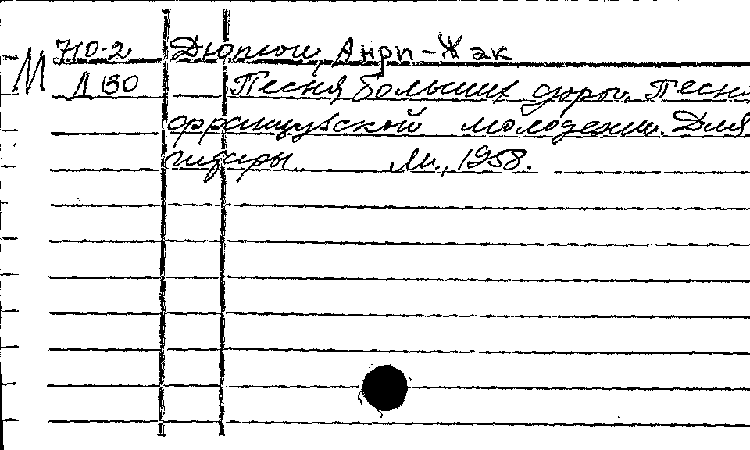 М Ню-2 Дюпюи, Анри-Жак
Д 130 Песня больших дорог. Песня
французской молодежи. Для
гитары М., 1958.